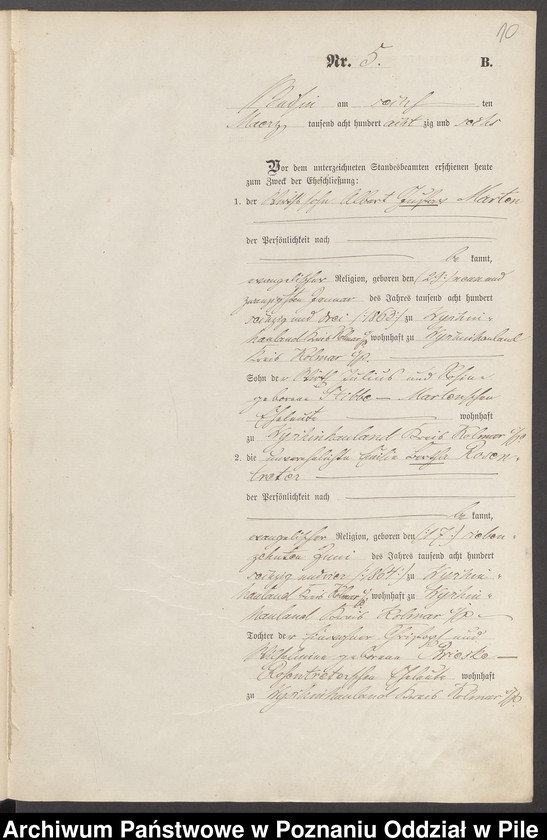 10
Nr. 5. B.
Budzin am ten
Maerz tausend acht hundert acht zig und sechs
Vor dem unterzeichneten Standesbeamten erschienen heute
zum Zweck der Eheschließung:
1. der Wirthssohn Albert Martin
der Persönlichkeit nach
be kannt,
evangelischer Religion, geboren den (29:) neun und
zwanzigsten Januar des Jahres tausend acht hundert
sechzig und drei (:1863:) zu
hauland Kreis Kolmar i/p, wohnhaft zu
Kreis Kolmar i/p.
Sohn der Wirth Julius und
geborene Stibbe — Martenschen
Eheleute wohnhaft
zu Kreis Kolmar i/p
2. die unverehelichte Bertha Rosen-
treter
der Persönlichkeit nach
be kannt,
evangelischer Religion, geboren den (:17:) sieben-
zehnten Juni des Jahres tausend acht hundert
sechzig und vier (:1864:) zu
hauland Kreis Kolmar i/p, wohnhaft zu
hauland Kreis Kolmar i/p.
Tochter der und
Wilhelmine geborene Brieske —
Rosentreterschen Eheleute wohnhaft
zu Kreis Kolmar i/p.
Archiwum Państwowe w Poznaniu Oddział w Pile